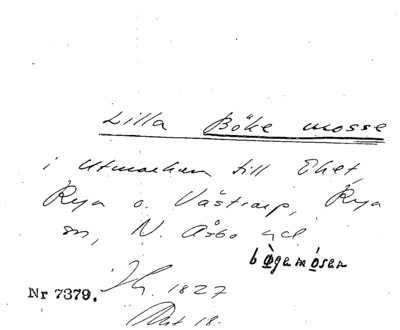 Lilla Böke mosse
i utmarken till Ehet,
Rya o. Västrarp, Rya
sn, N. Åsbo hd
bögemósen
Nr 7379. 1827
Akt 18.